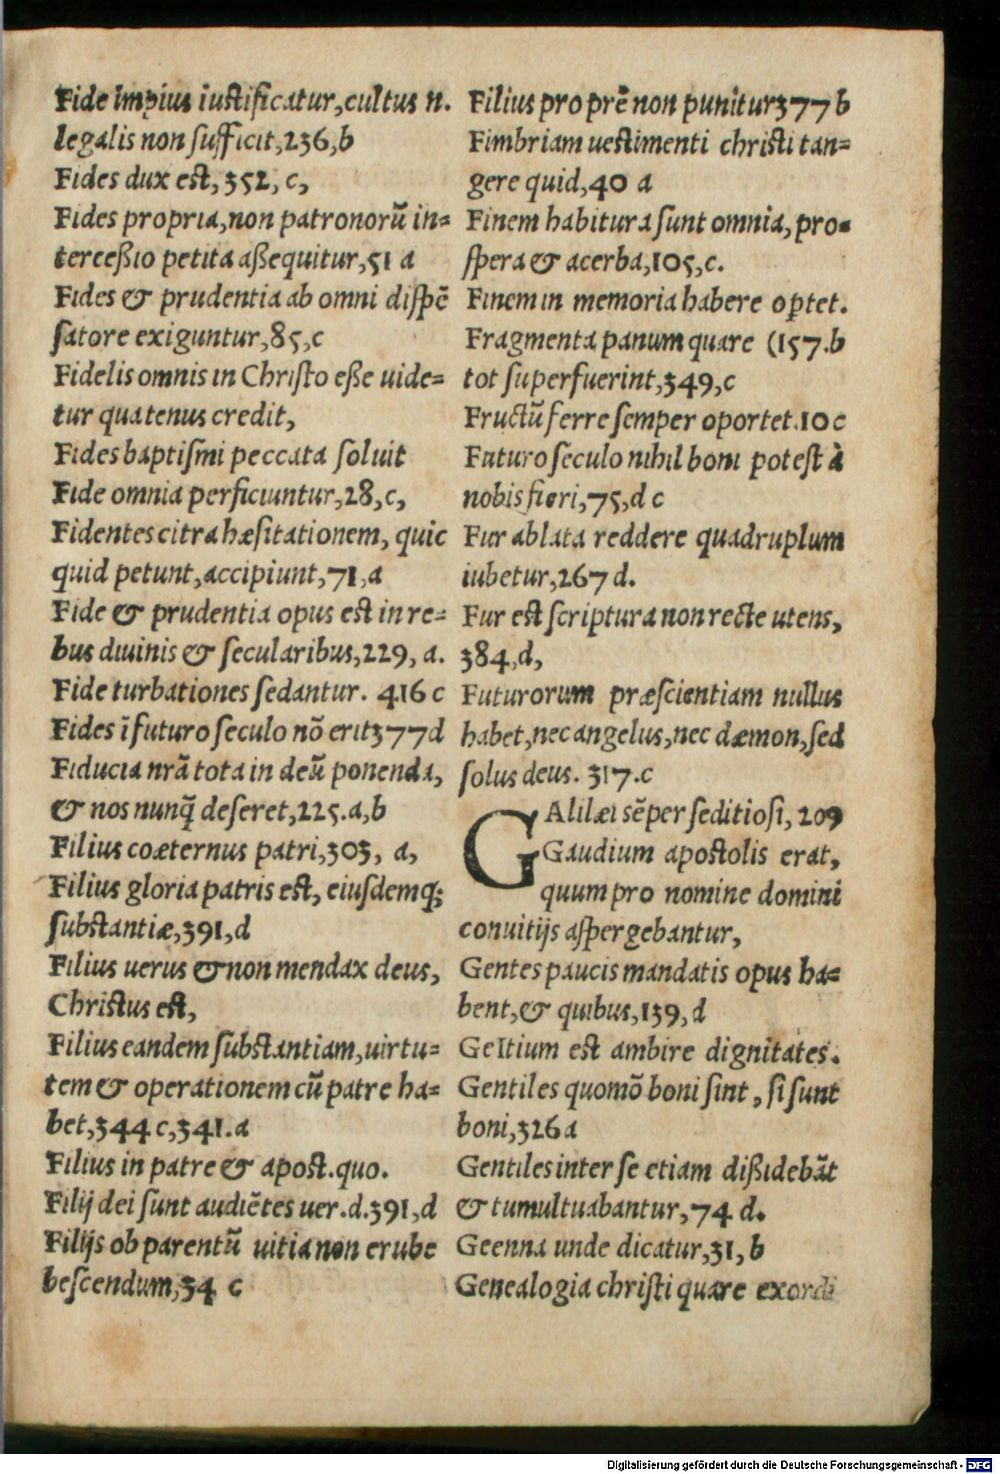 Fide impius iustificatur,cultus n.
legalis non sufficit,236,b
Fides dux est, 352, c,
Fides propria,non patronorū in=
terceßio petita aßequitur,51 a
Fides & prudentia ab omni dispē
satore exiguntur,85,c
Fidelis omnis in Christo eße uide=
tur quatenus credit,
Fides baptismi peccata soluit
Fide omnia perficiuntur,28,c,
Fidentes citra hæsitationem, quic
quid petunt,accipiunt,71,a
Fide & prudentia opus est in re=
bus diuinis & secularibus,229, a.
Fide turbationes sedantur. 416 c
Fides ī futuro seculo nō erit377d
Fiducia nrā tota in deū ponenda,
& nos nunq̄ deseret,225.a,b
Filius coæternus patri,303, a,
Filius gloria patris est, eiusdemq;
substantiæ,391,d
Filius uerus & non mendax deus,
Christus est,
Filius eandem substantiam,uirtu=
tem & operationem cū patre ha=
bet,344 c,341.a
Filius in patre & apost.quo.
Filij dei sunt audiētes uer.d.391,d
Filijs ob parentū uitia non erube
bescendum,34 c
Filius pro prē non punitur377 b
Fimbriam uestimenti christi tan=
gere quid,40 a
Finem habitura sunt omnia, pro=
spera & acerba,105,c.
Finem in memoria habere optet.
Fragmenta panum quare (157.b
tot superfuerint,349,c
Fructū ferre semper oportet.10 c
Futuro seculo nihil boni potest à
nobis fieri,75,d c
Fur ablata reddere quadruplum
iubetur,267 d.
Fur est scriptura non recte utens,
384,d,
Futurorum præscientiam nullus
habet,nec angelus,nec dæmon,sed
solus deus. 317.c
GAlilæi sēper seditiosi, 209
Gaudium apostolis erat,
quum pro nomine domini
conuitijs aspergebantur,
Gentes paucis mandatis opus ha=
bent,& quibus,139,d
Geītium est ambire dignitates.
Gentiles quomō boni sint , si sunt
boni,326 a
Gentiles inter se etiam dißidebāt
& tumultuabantur,74 d.
Geenna unde dicatur,31, b
Genealogia christi quare exordi
Digitalisierung gefördert durch die Deutsche Forschungsgemeinschaft - DFG